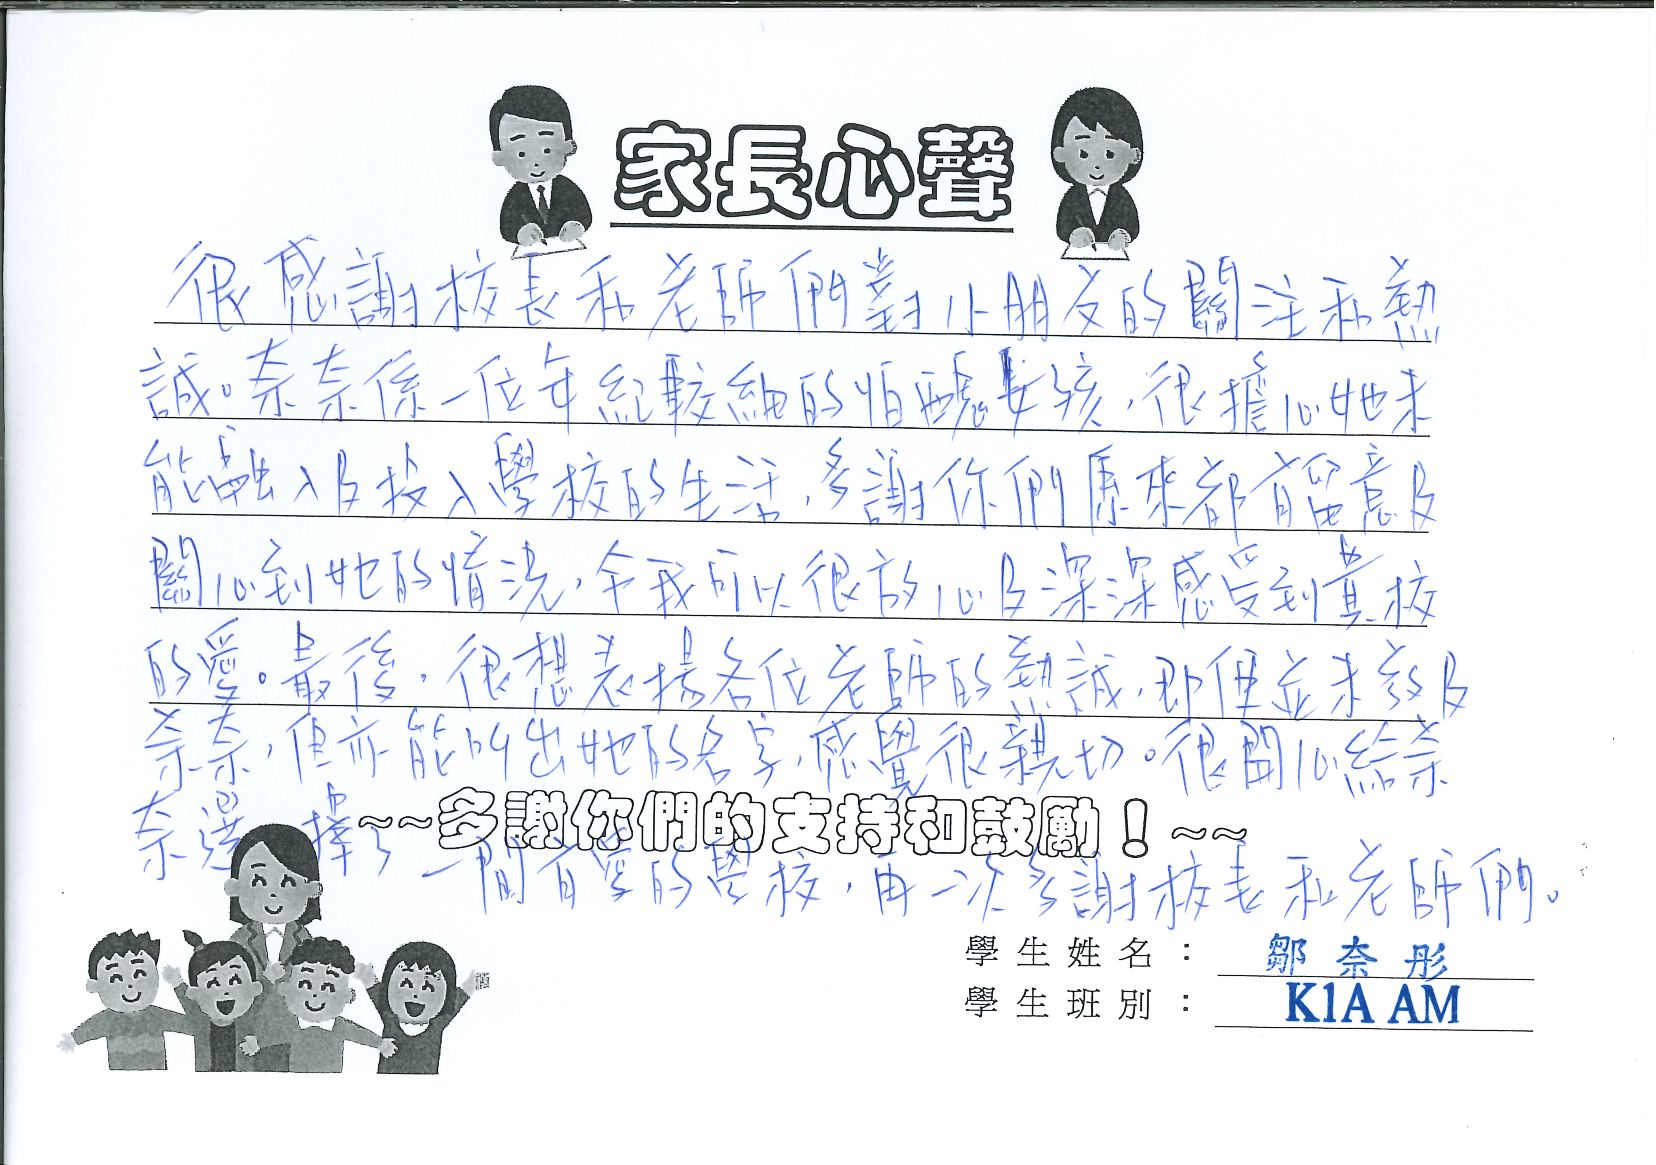 家長心聲
很感謝校長和老師們對小朋友的關注和熱
誠。奈奈係一位年紀較細的怕醜女孩，很擔心她未
能融入及投入學校的生活，多謝你們原來都有留意及
關心到她的情況，令我可以很放心及深深感受到貴校
的愛。最後，很想表揚各位老師的熱誠，即使並未教及
奈奈，但亦能叫出她的名字，感覺很親切。很開心給奈
奈選擇了一間有愛的學校，再一次多謝校長和老師們。
~~多謝你們的支持和鼓勵！~~
學生姓名： 鄒奈彤
學生班別： K1A AM